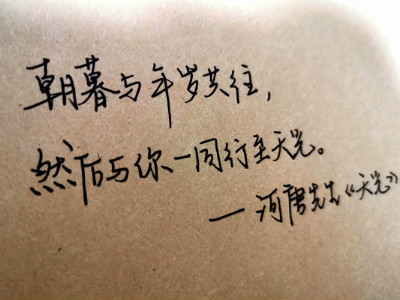 朝暮与年岁共往，
然后与你一同行至天光。
——河唐先生《天光》